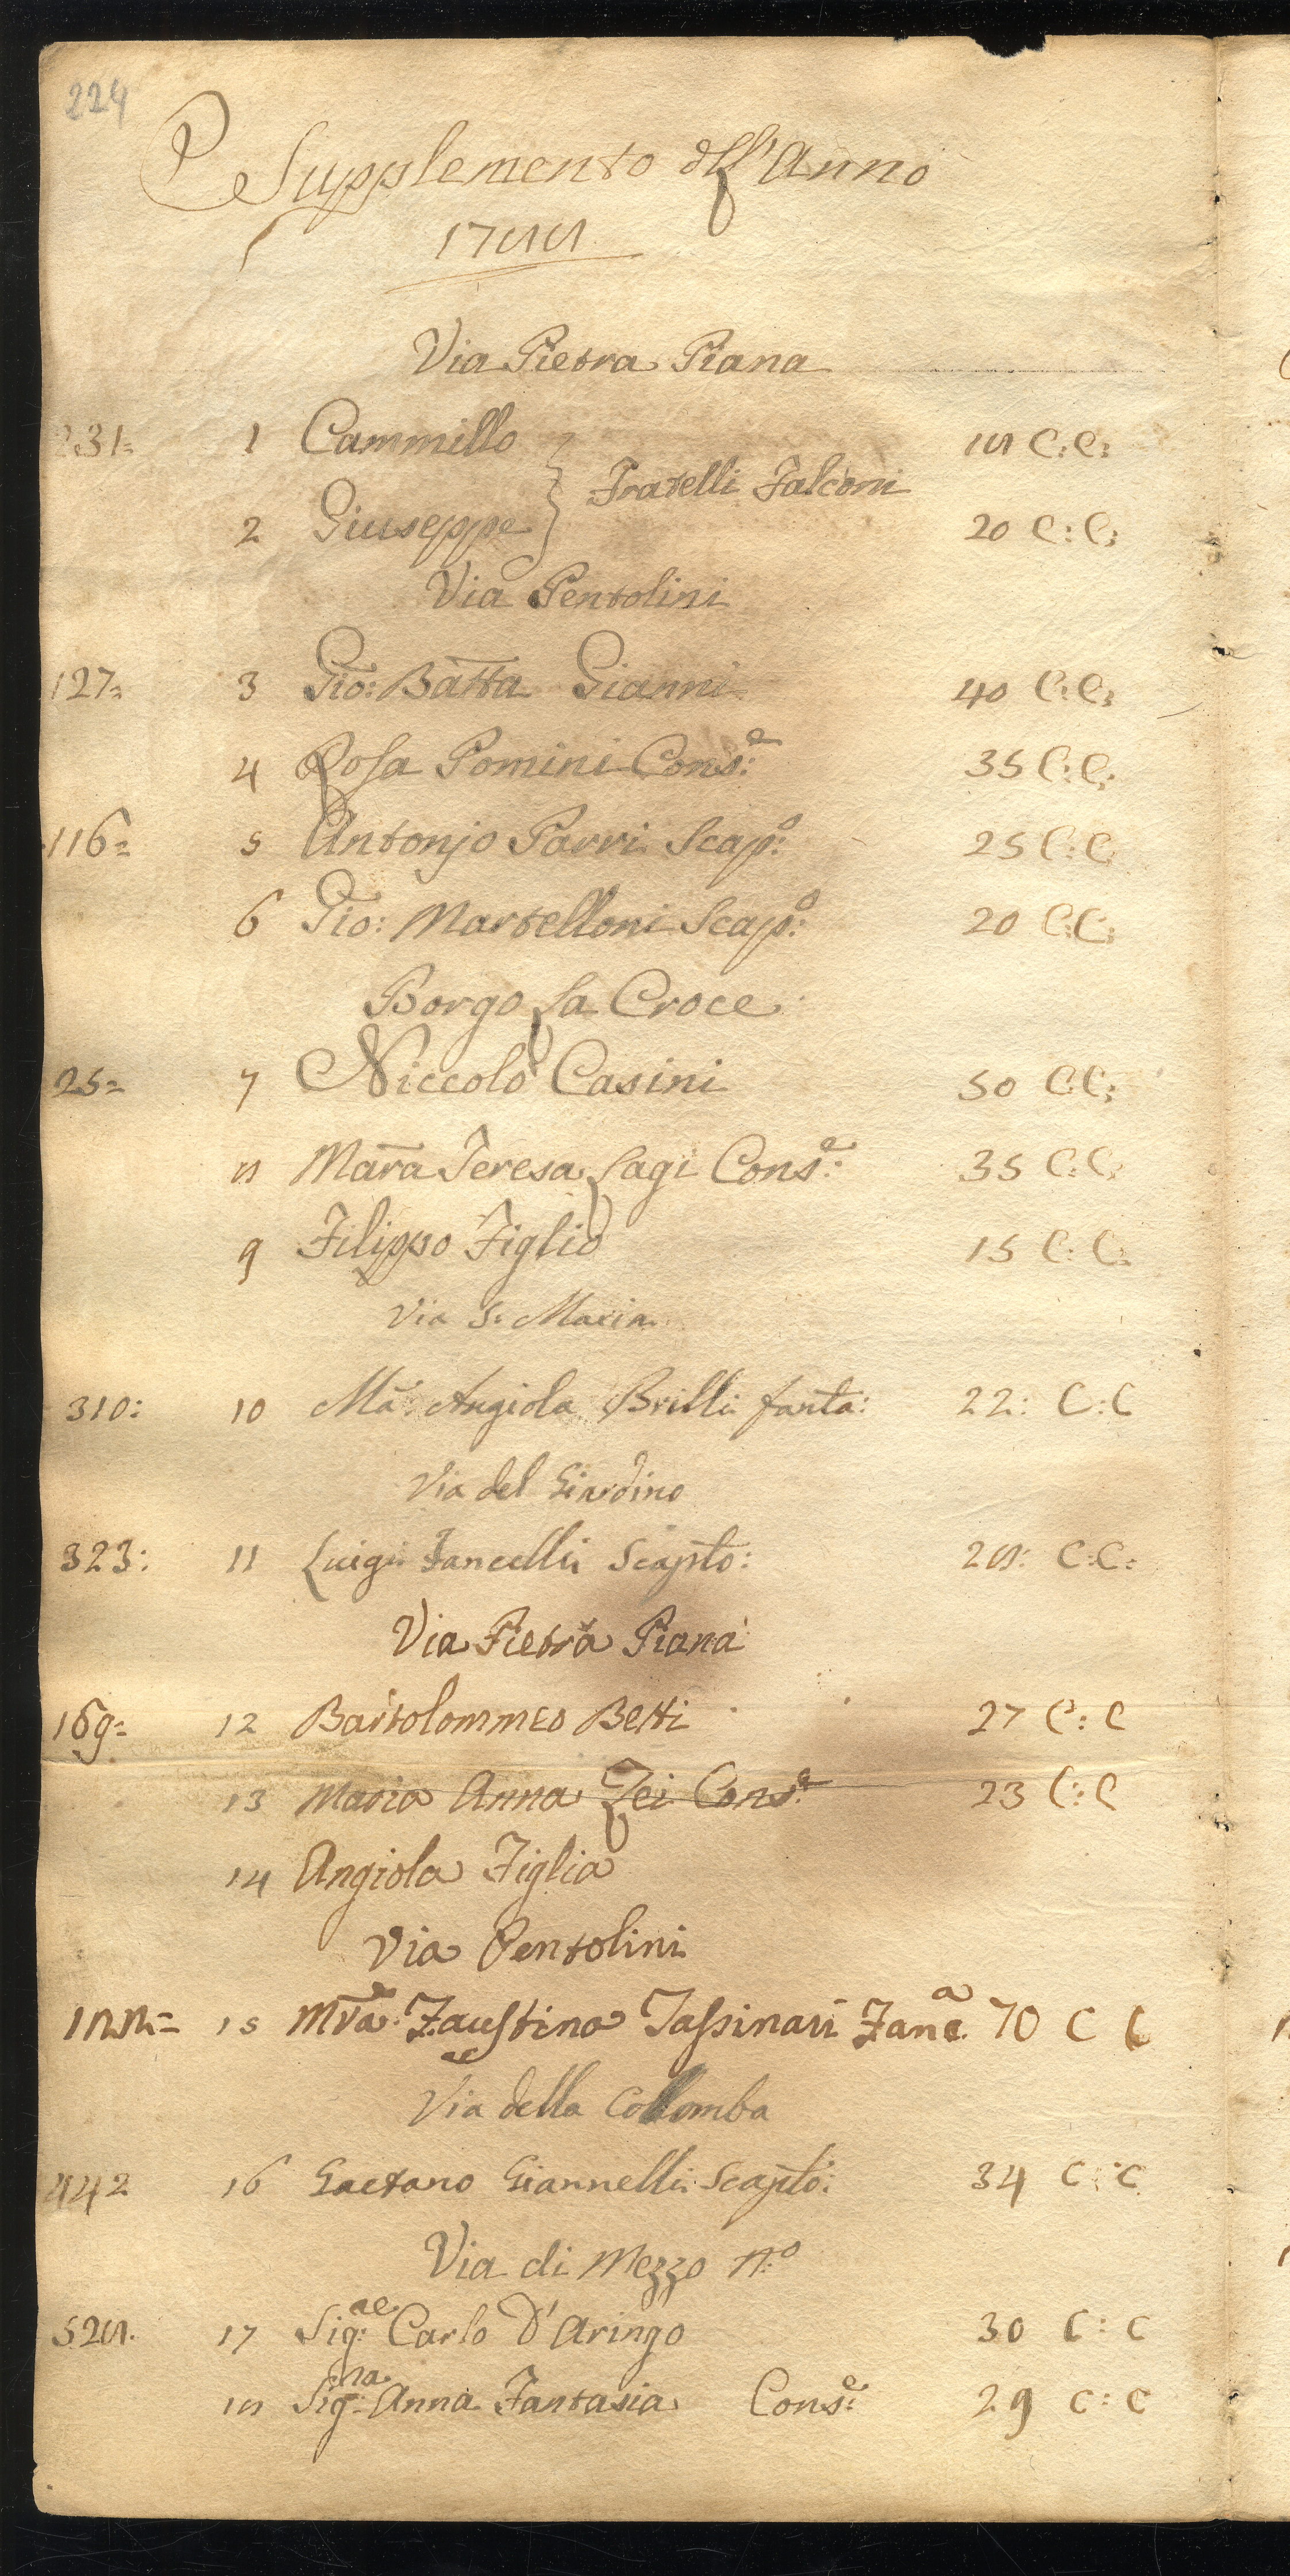 224
Supplemento dell'Anno
1788
Via Pietra Piana
231= 1 Cammillo 18 C:C:
Fratelli Falconi
2 Giuseppe 20 C:C:
Via Pentolini
127= 3 Gio: Batta Gianni 40 C:C:
4 Rosa Pomini Cons:e 35 C:C:
116= 5 Antonjo Parri Scap:o 25 C:C
6 Gio: Martelloni Scap:o 20 C:C:
Borgo la Croce
25= 7 Niccolò Casini 50 C:C:
8 Maria Teresa Lagi Cons:e 35 C:C:
9 Filippo Figlio 15 C:C:
Via S: Maria
310: 10 Ma: Angiola Brilli fanta: 22: C:C
Via del Giardino
323: 11 Luigi Fancelli Scapto: 28: C:C:
Via Pietra Piana
169= 12 Bartolommeo Betti 27 C:C
13 Maria Anna Zei Cons:e 23 C:C
14 Angiola Figlia
Via Pentolini
188= 15 Mra: Faustina Tassinari Fanc.a 70 C C
Via della Collomba
442 16 Gaetano Giannelli Scapto: 34 C:C
Via di Mezzo n:o
528. 17 Sig:re Carlo D'Aringo 30 C:C
18 Sig:na Anna Fantasia Cons:e 29 C:C